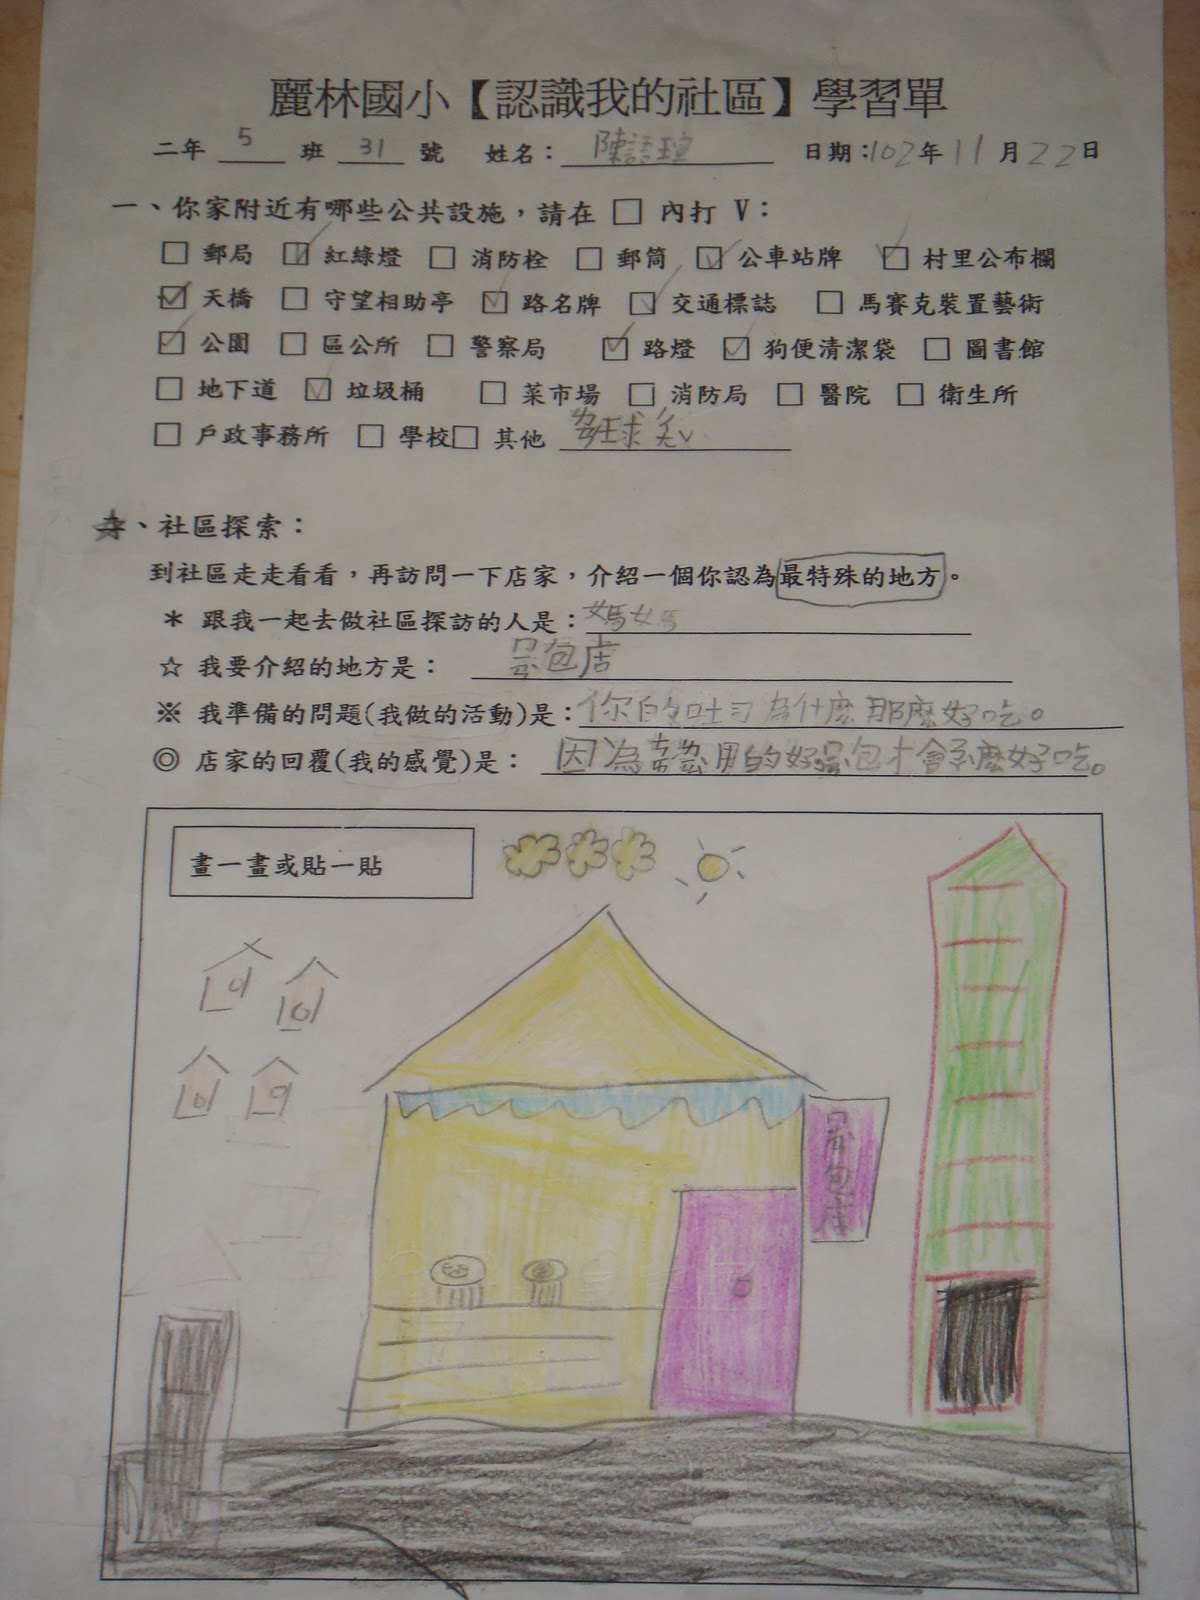 麗林國小【認識我的社區】學習單
二年 5 班 31 號 姓名: 陳語瑄 日期:102年11月22日
一、你家附近有哪些公共設施,請在 □ 內打 V:
□ 郵局 ☑ 紅綠燈 □ 消防栓 □ 郵筒 ☑ 公車站牌 ☑ 村里公布欄
☑ 天橋 □ 守望相助亭 ☑ 路名牌 ☑ 交通標誌 □ 馬賽克裝置藝術
☑ 公園 □ 區公所 □ 警察局 ☑ 路燈 ☑ 狗便清潔袋 □ 圖書館
□ 地下道 ☑ 垃圾桶 □ 菜市場 □ 消防局 □ 醫院 □ 衛生所
□ 戶政事務所 □ 學校 □ 其他 球
、社區探索:
到社區走走看看,再訪問一下店家,介紹一個你認為最特殊的地方。
* 跟我一起去做社區探訪的人是:媽媽
☆ 我要介紹的地方是: 包店
※ 我準備的問題(我做的活動)是:你的吐司為什麼那麼好吃。
◎ 店家的回覆(我的感覺)是: 因為 用的好 包才會 麼好吃。
畫一畫或貼一貼
包店